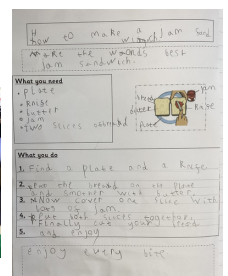 How to make a Jam Sand
wich
Make the words best
Jam sandwich.
What you need
• plate
• Knife
• butter
• Jam
• Two slices of bread
bread
butter
Plate
Jam
Knife
What you do
1. Find a plate and a Knife.
2. Put the bread on the plate
and smother with butter.
3. Now cover one slice with
lots of Jam.
4. Put both slices together.
5. Finally cut your bread
and enjoy
enjoy every bite